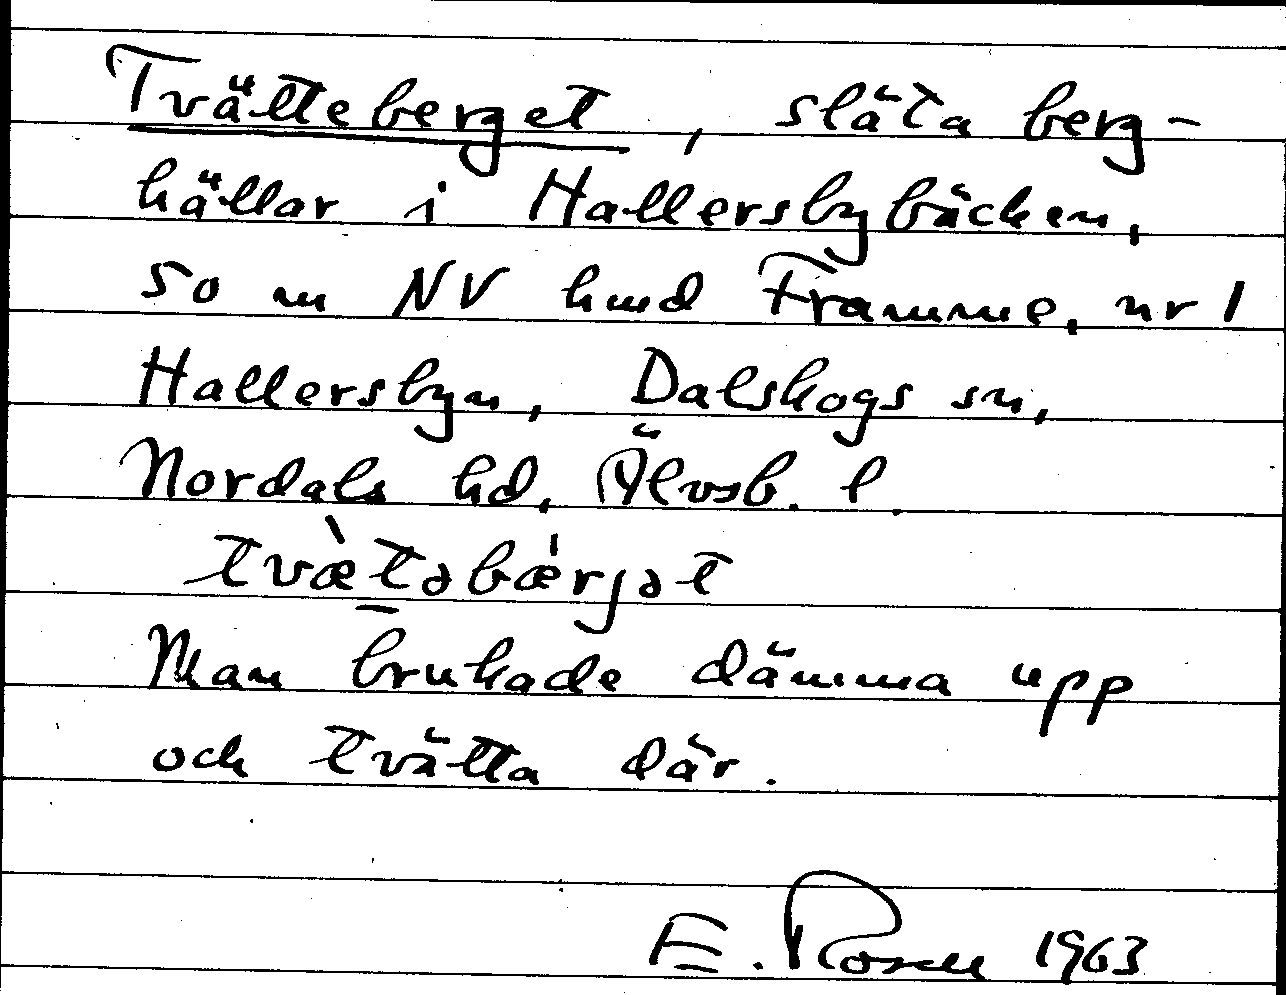 Tvätteberget, släta berg-
hällar i Hallersbybäcken,
som NV hmd Framme, nr 1
Hallersbyn, Dalskogs sn,
Nordals hd, Älvsb. l.
tvæ̀təbǽrjət
Man brukade dämma upp
och tvätta där.
E. Rosell 1963